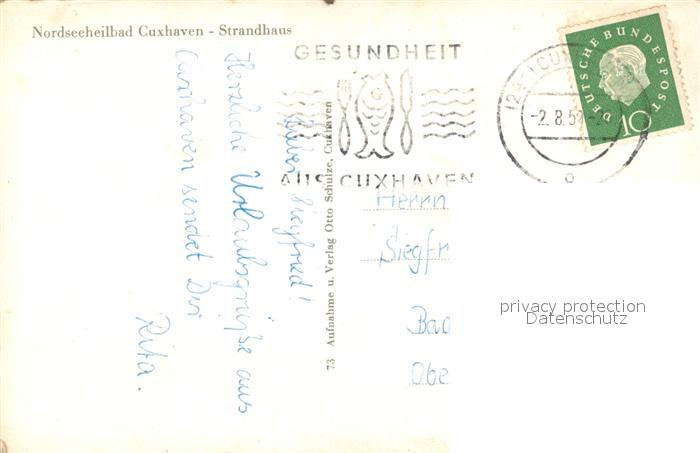 Nordseeheilbad Cuxhaven - Strandhaus
GESUNDHEIT
AUS CUXHAVEN
-2.8.59
DEUTSCHE BUNDESPOST
10
73 Aufnahme u. Verlag Otto Schulze, Cuxhaven
Lieber Siegfried!
Herzliche Urlaubsgrüße aus
Cuxhaven sendet Dir
Rita.
Herrn
Siegfr
Bad
Obe
privacy protection
Datenschutz